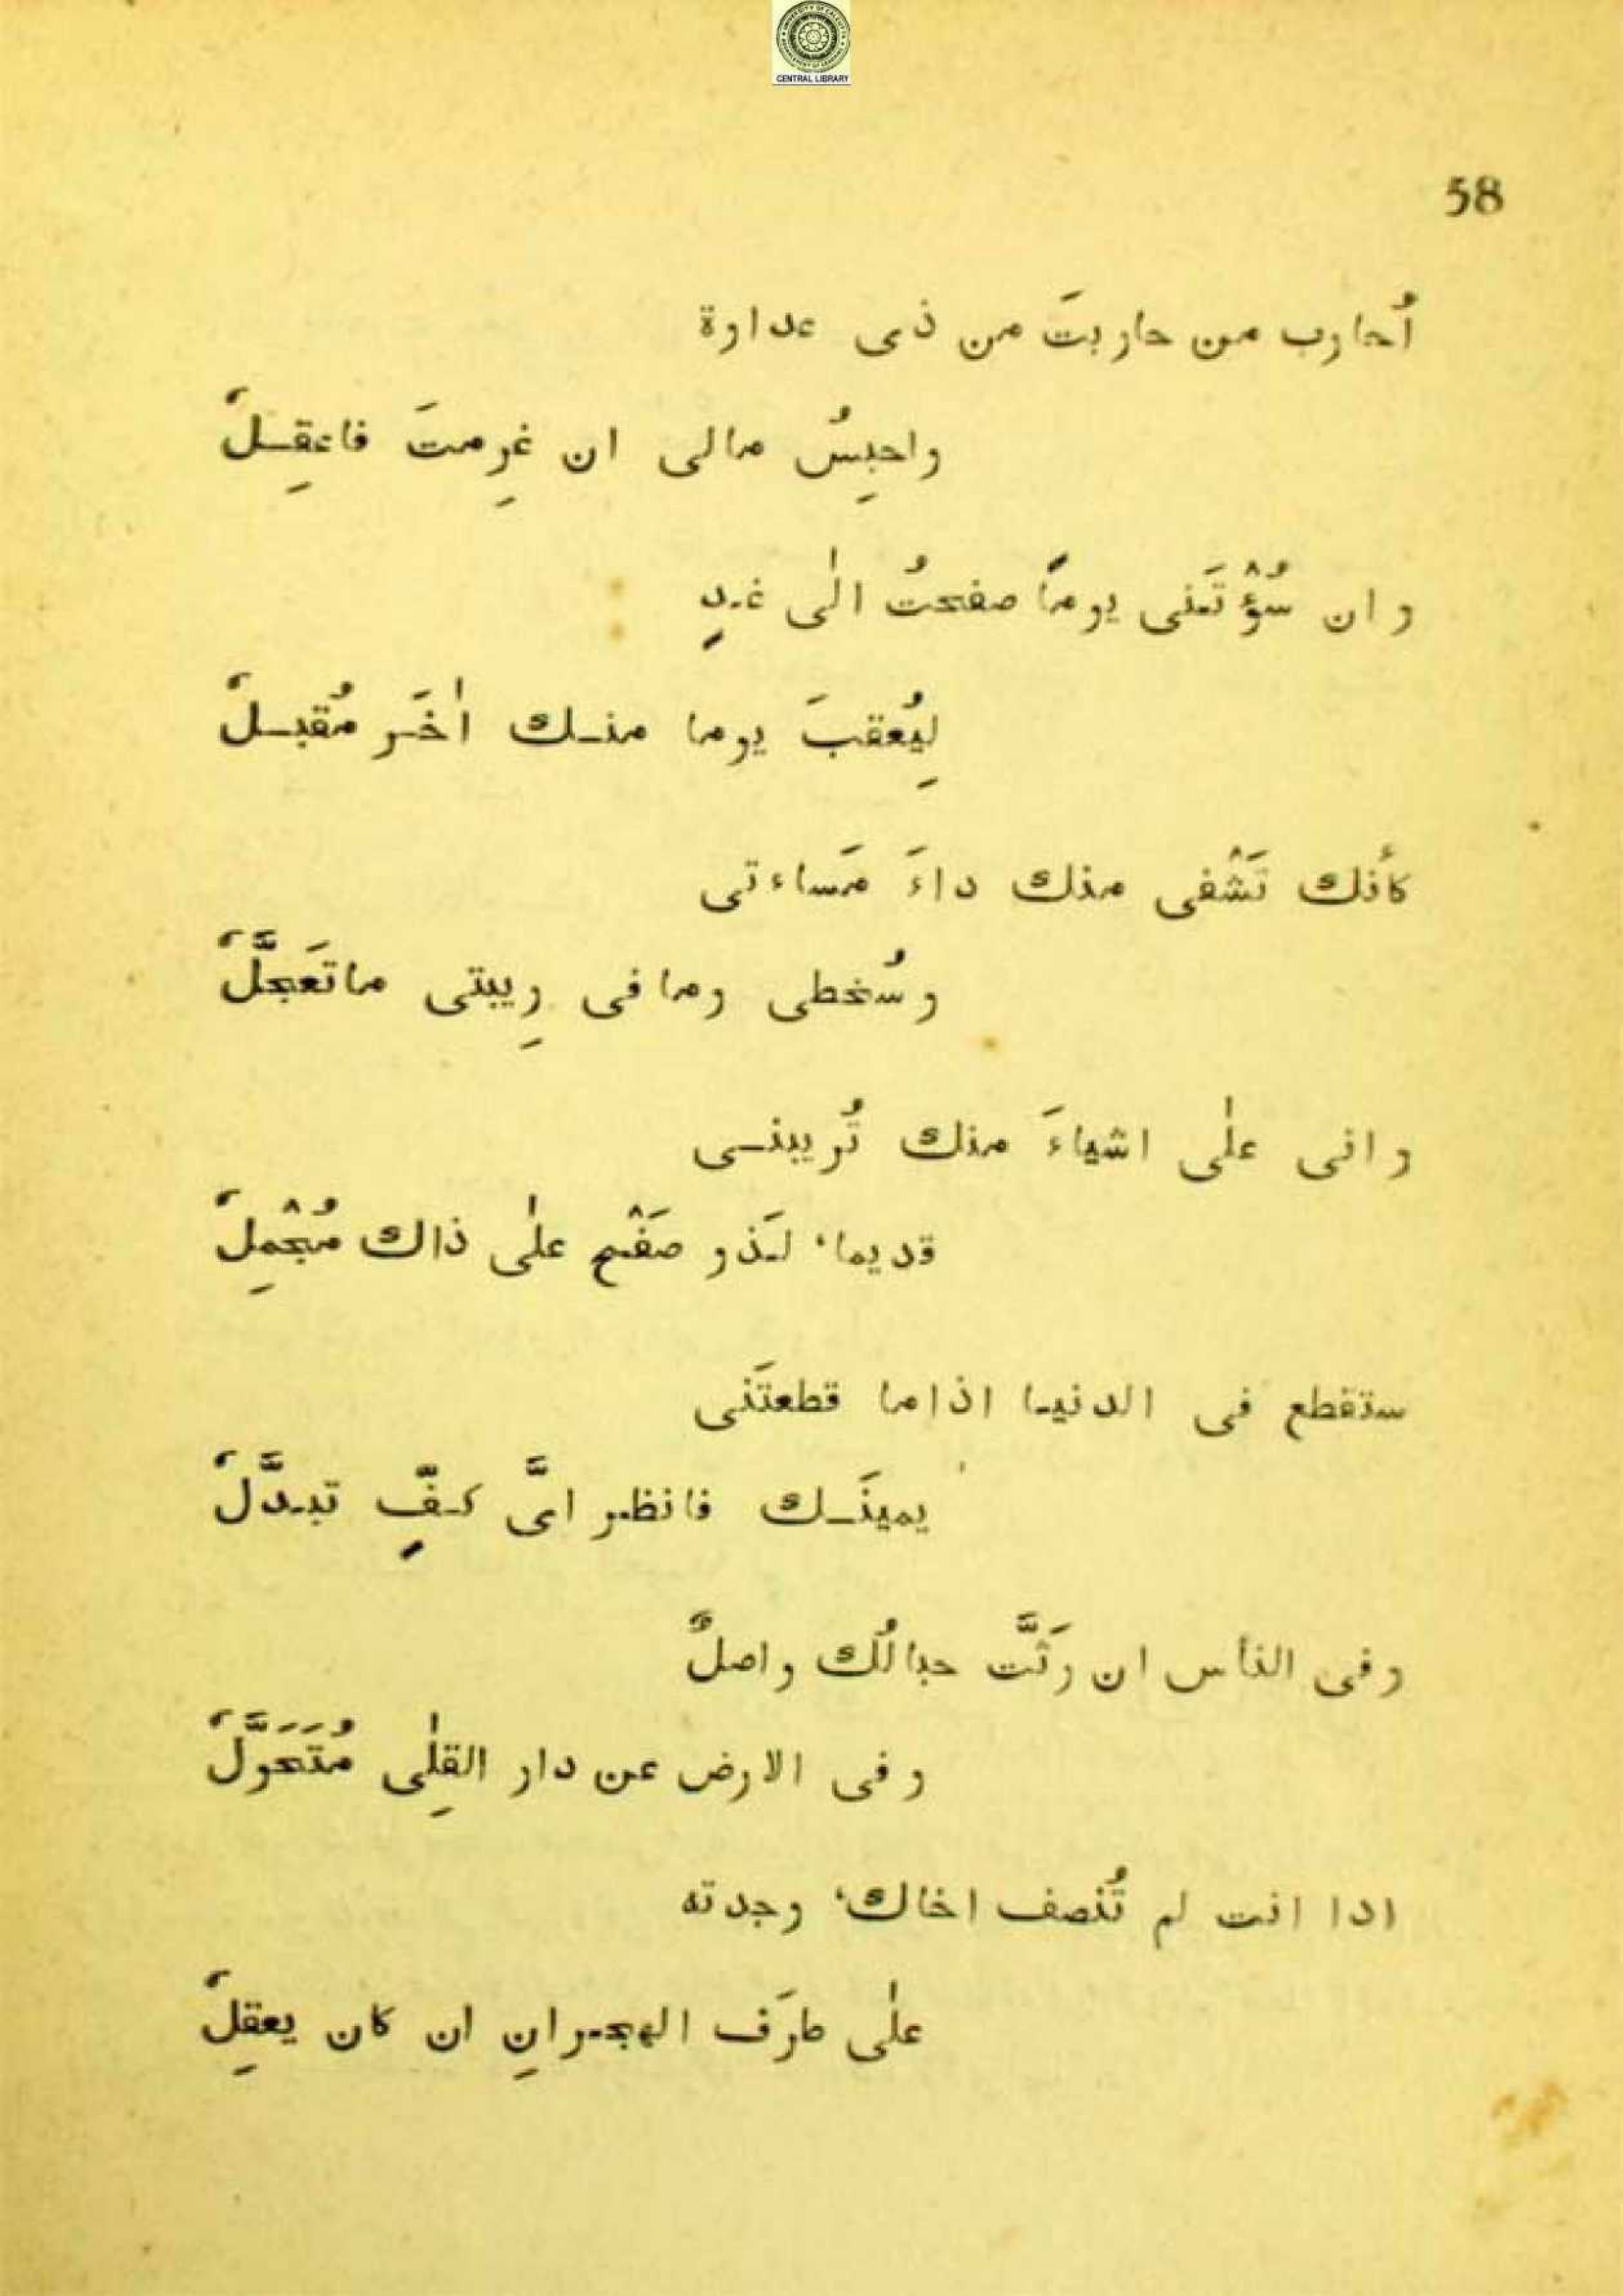 CENTRAL LIBRARY
58
اُحارب من حاربتَ من ذى عدارة
واحبِسُ مالى ان غرِمتَ فاعقِـلٗ
و ان سُؤْتَنى يومًا صفحتُ الٰى غـدٍ
لِيُعقبَ يوما منـك اٰخَـر مُقبـلٗ
كأنك تَشْفى منك داءَ مَساءتى
وسُخطى وما فى رِيبتى ماتَعَجَّلٗ
و انى علٰى اشياءَ منك تُريبنـى
قديما، لَـذو صَفْـح علٰى ذاك مُجْمِلٗ
ستقطع فى الدنيـا اذاما قطعتَنى
يمينَـك فانظر اىَّ كـفٍّ تبـدَّلٗ
وفى الناس ان رَثَّت حبالُك واصلٌ
وفى الارض عن دار القِلٰى مُتَحَوَّلٗ
ادا انت لم تُنصف اخاك، وجدته
علٰى طرَف الهجـرانِ ان كان يعقِلٗ